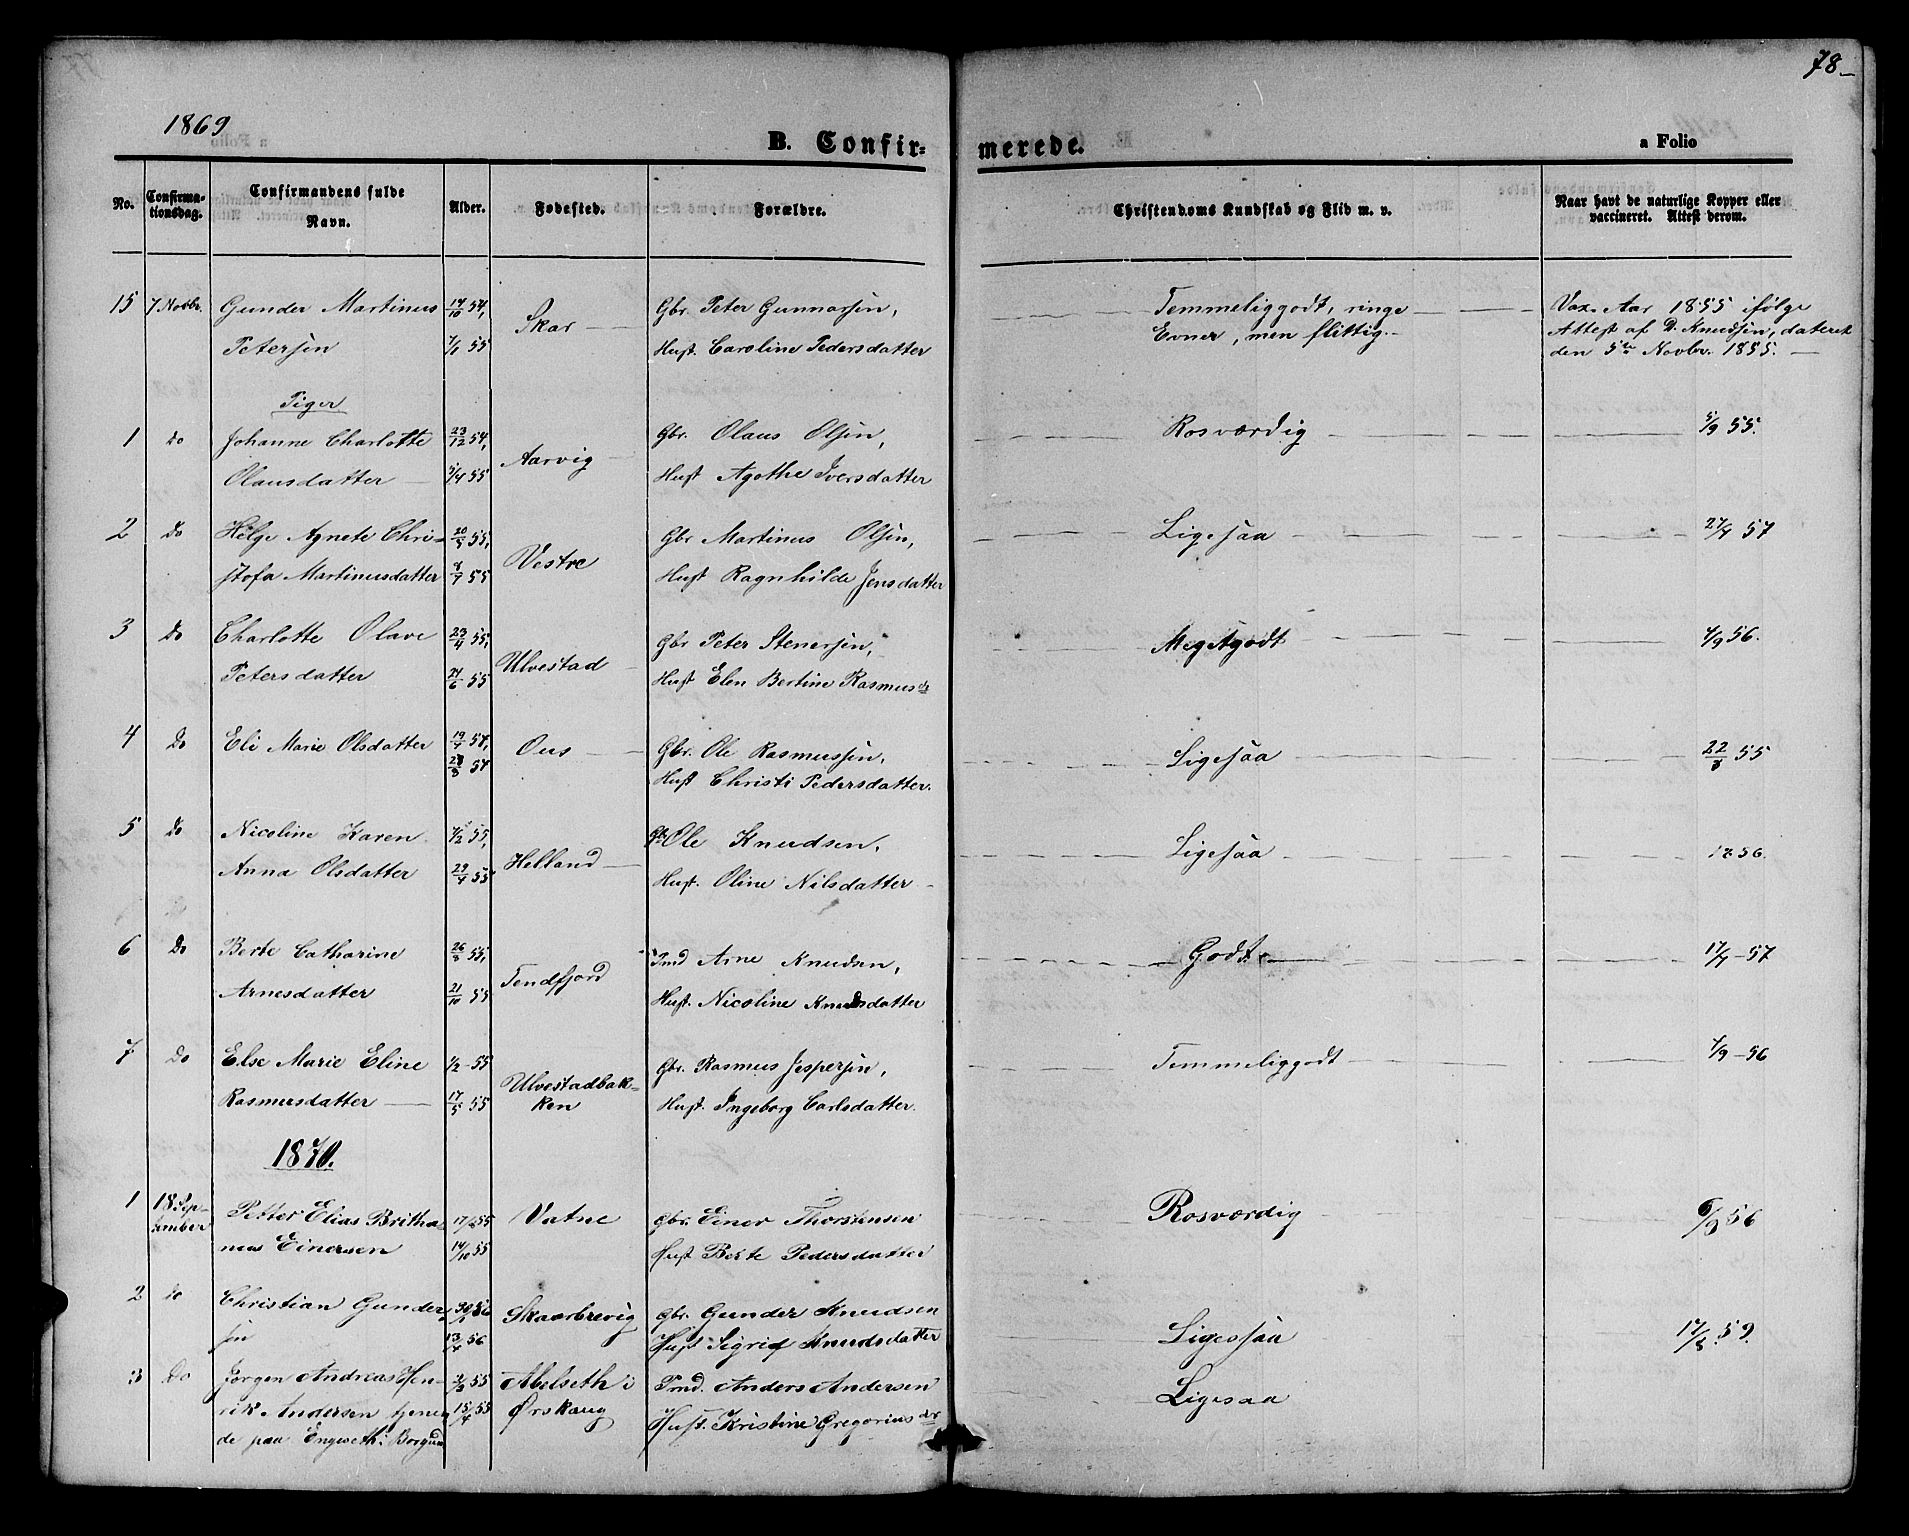 78
1869
B. Confir-
merede.
a Folio
No.
Confirma-
tionsdag.
Confirmandens fulde
Navn.
Alder.
Fødested.
Forældre.
Christendoms Kundskab og Flid m. v.
Naar havt de naturlige Kopper eller
vaccineret. Attest derom.
15 7 Novbr. Gunder Martinus 14/10 54, Skar Gbr. Peter Gunnarsen, Temmeliggodt, ringe Vax. Aar 1855 ifølge
Petersen 7/1 55 Hust. Caroline Pedersdatter Evner, men flittig. Attest af D. Knudsen, dateret
den 5te Novbr. 1855.
Piger
1 do Johanne Charlotte 23/12 54, Aarvig Gbr. Olaus Olsen, Rosværdig 5/9 55.
Olausdatter /4 55 Hust Agathe Iversdatter
2 do Helge Agnete Chri- 55, Vestre Gbr Martinus Olsen, Ligesaa 57
stofa Martinusdatter 8/7 55 Hust Ragnhilde Jensdatter
3 do Charlotte Olave 23/4 55, Ulvestad Gbr Peter Stenersen, Megetgodt /9 56.
Petersdatter 24/6 55 Hust Elen Bertine Rasmusdr
4 do Eli Marie Olsdatter Ous Gbr. Ole Rasmussen, Ligesaa 22/8 55
54 Hust Christi Pedersdatter.
5 do Nicoline Karen /2 55, Helland Gbr Ole Knudsen, Ligesaa 1856.
Anna Olsdatter 29/4 55 Hust. Oline Nilsdatter
6 do Berte Catharine 26/8 55, Tendfjord Ind Arne Knudsen, Godt. 57
Arnesdatter 21/10 55 Hust. Nicoline Knudsdatter
7 do Else Marie Eline 1/2 55 Ulvestadbak- Gbr. Rasmus Jespersen, Temmeliggodt /9 56
Rasmusdatter 17/5 55 ken Hust. Ingeborg Carlsdatter.
1870.
1 18 Sep- Petter Elias Britha 55 Vatne Gbr. Einer Thorstensen Rosværdig 6/9 56
tember nus Einersen 14/10 55 Hust Berte Pedersdatter
2 do Christian Gunder Skaarbrevig Gbr. Gunder Knudsen Ligessaa 59.
sen 13/4 56 Hust Sigrid Knudsdatter
3 Do Jørgen Andreas Hen- 55 Abelseth i Pmd. Anders Andersen Ligesaa
rik Andersen tjenen 15/4 55 Ørskaug Hust. Kristine Gregoriusdr
de paa Engeseth i Borgund